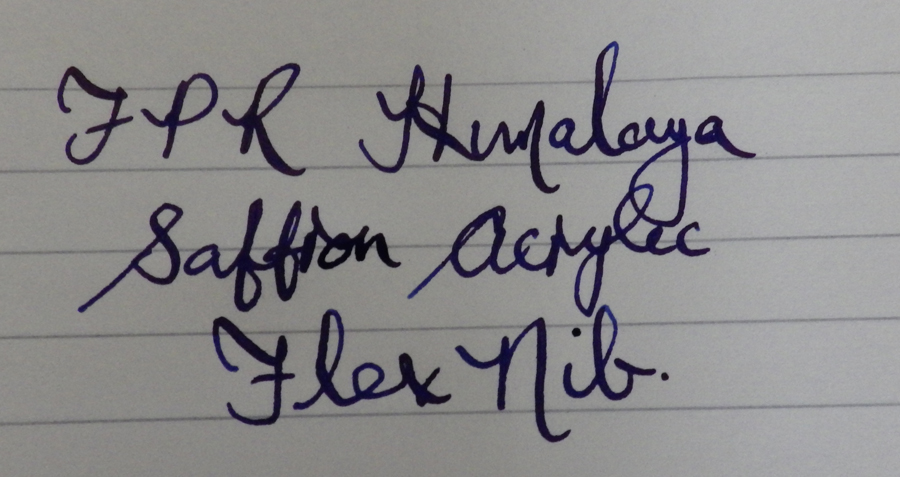 FPR Himalaya
Saffron Acrylic
Flex Nib.